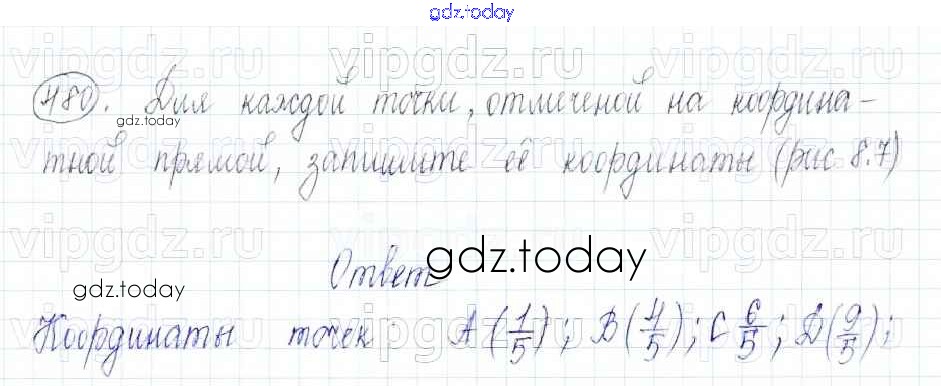 gdz.today
vipgdz.ru vipgdz.ru vipgdz.ru
480. Для каждой точки, отмеченой на координа-
gdz.today
тной прямой, запишите её координаты (рис 8.7)
vipgdz.ru vipgdz.ru vipgdz.ru
Ответ
gdz.today
gdz.today
Координаты точек A (1/5); B (4/5); C 6/5; D (9/5);
vipgdz.ru vipgdz.ru vipgdz.ru